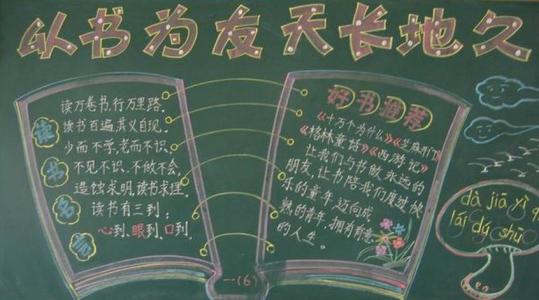 以书为友天长地久
读书名言
读万卷书，行万里路。
读书百遍，其义自现。
少而不学，老而不识，
不见不识，不做不会。
造烛求明，读书求理。
读书有三到：
心到，眼到，口到。
好书推荐
《十万个为什么》《芝麻开门》
《格林童话》《西游记》
让我们与书做永远的
朋友，让书陪我们度过快
乐的童年，迈向成
熟的青年，拥有有意
的人生。
一（6）
dà jiā yì q
lái dú shū